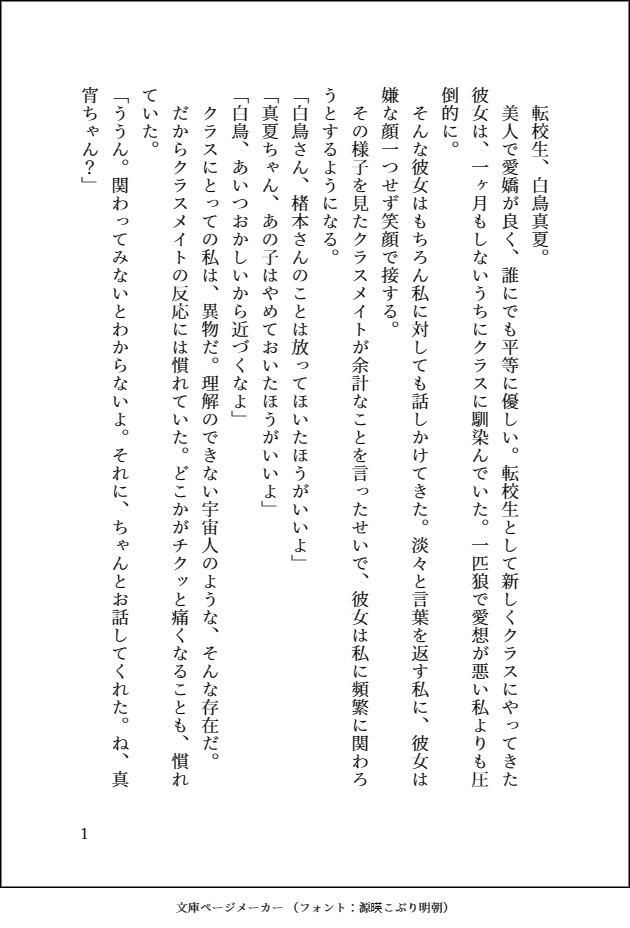 転校生、白鳥真夏。
美人で愛嬌が良く、誰にでも平等に優しい。転校生として新しくクラスにやってきた
彼女は、一ヶ月もしないうちにクラスに馴染んでいた。一匹狼で愛想が悪い私よりも圧
倒的に。
そんな彼女はもちろん私に対しても話しかけてきた。淡々と言葉を返す私に、彼女は
嫌な顔一つせず笑顔で接する。
その様子を見たクラスメイトが余計なことを言ったせいで、彼女は私に頻繁に関わろ
うとするようになる。
「白鳥さん、楮本さんのことは放ってほいたほうがいいよ」
「真夏ちゃん、あの子はやめておいたほうがいいよ」
「白鳥、あいつおかしいから近づくなよ」
クラスにとっての私は、異物だ。理解のできない宇宙人のような、そんな存在だ。
だからクラスメイトの反応には慣れていた。どこかがチクッと痛くなることも、慣れ
ていた。
「ううん。関わってみないとわからないよ。それに、ちゃんとお話してくれた。ね、真
宵ちゃん？」
1
文庫ページメーカー（フォント：源暎こぶり明朝）